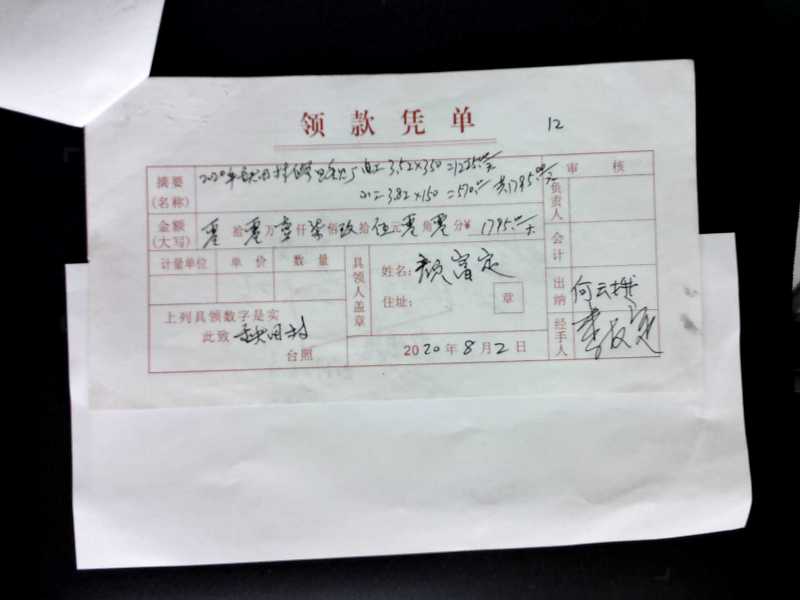 领款凭单
12
摘要
(名称)
2020年 3.52×350=1225.00元
3.82×150=570.00 共1795.00元
审核
负责人
金额
(大写)
零拾零万壹仟柒佰玖拾伍元零角零分¥ 1795.00元
会计
计量单位 单价 数量
具领人盖章
姓名:颜富定
住址:
章
出纳
何云
上列具领数字是实
此致 田村
台照
经手人
2020年8月2日